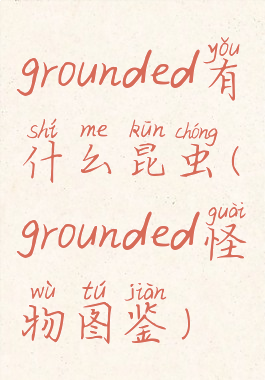 yǒu
grounded有
shí me kūn chóng
什么昆虫(
guài
grounded怪
wù tú jiàn
物图鉴)